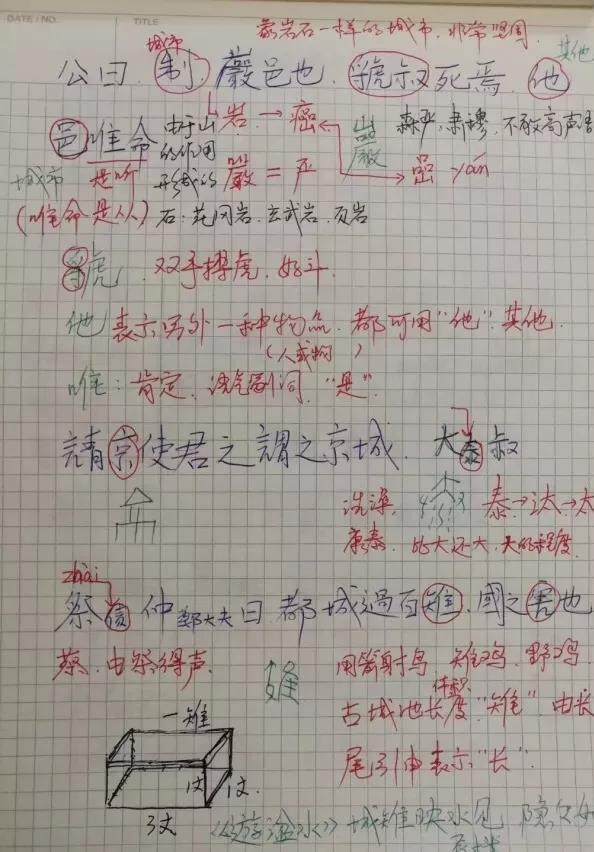 DATE / NO.
TITLE
城市
像岩石一样的城市,非常坚固
其他
公曰,制,巖邑也,虢叔死焉,他
邑唯命 由于山 岩→癌 巖 森严,肃穆,不敢高声语
的作用
城市 是听 形成的 嚴=严 嵒 yán
(唯命是从) 石:花冈岩,玄武岩,页岩
虢 双手搏虎,好斗
他 表示另外一种物品,都可用“他”,其他
(人或物)
唯:肯定,语气副词,“是”
請京使君之謂之京城,大泰叔
洗澡, 泰→汰→太
康泰,比大还大,大的程度
zhài
祭 仲 郑大夫曰,都城過百雉,國之害也
蔡,由祭得声
雉
用箭射鸟,雉鸡,野鸡
体积
古城池长度“雉”由长
尾引申表示“长”
一雉
1丈 1丈
3丈
《游溢水》城雉映水见,隐